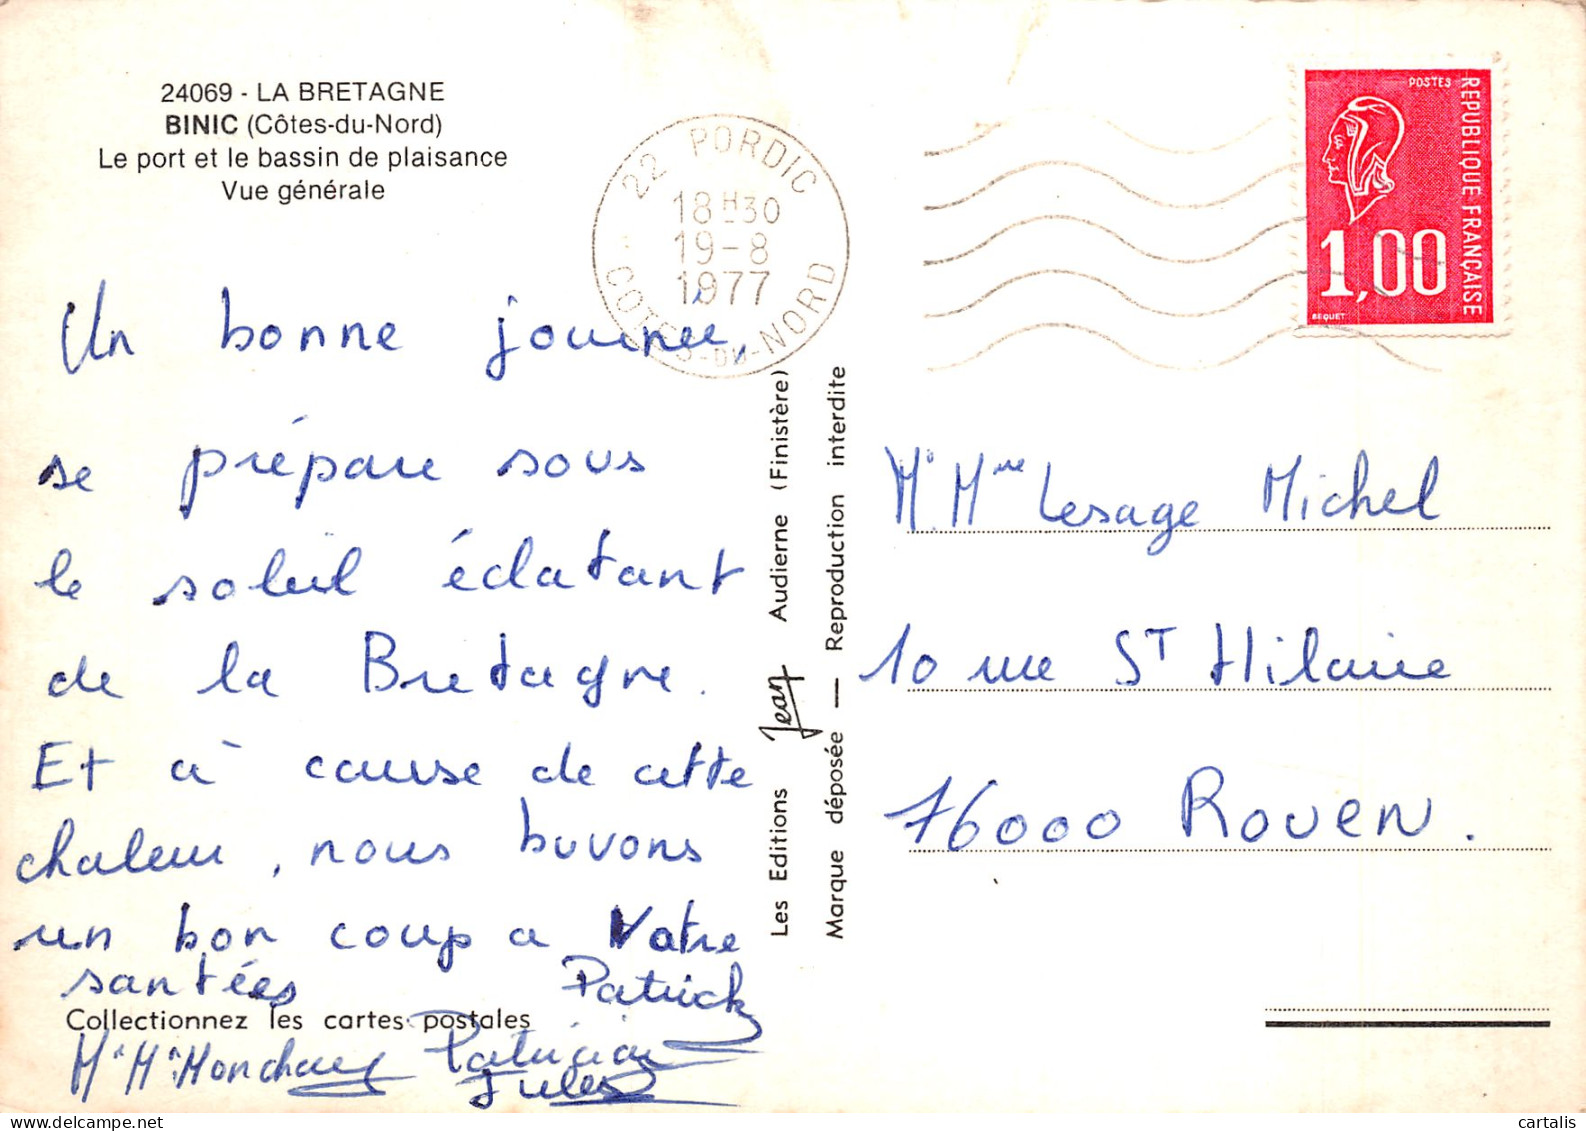 24069 - LA BRETAGNE
BINIC (Côtes-du-Nord)
Le port et le bassin de plaisance
Vue générale
22 PORDIC
18H30
19-8
1977
COTES-DU-NORD
POSTES
REPUBLIQUE FRANÇAISE
1,00
BEQUET
Un bonne journée,
se prépare sous
le soleil éclatant
de la Bretagne.
Et à cause de cette
chaleur, nous buvons
un bon coup a Votre
santées
Patrick
Collectionnez les cartes postales
Patricia
Jules
Les Editions Jean Audierne (Finistère)
Marque déposée — Reproduction interdite
Mr Mme Lesage Michel
10 rue ST Hilaire
76000 ROUEN.
cartalis